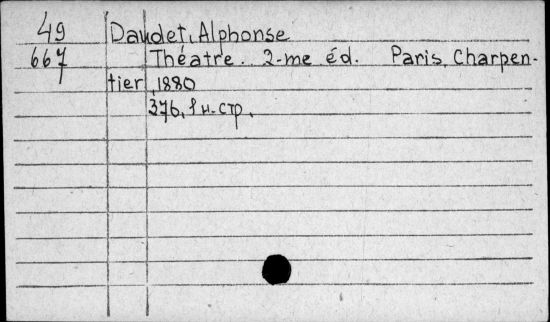 49 Daudet, Alphonse
667 Théatre. 2-me éd. Paris, Charpen-
tier, 1880
376, 1 н. стр.